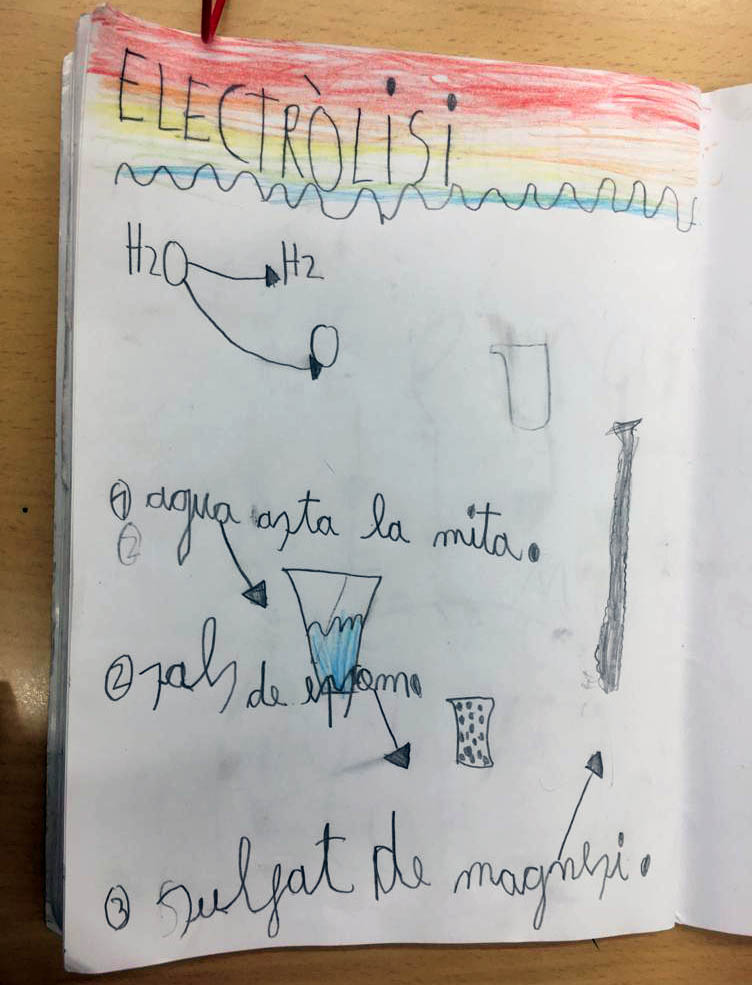 ELECTRÒLiSi
H2O H2
O
① agua asta la mita.
②
② sals de epsom.
③ sulfat de magnesi.